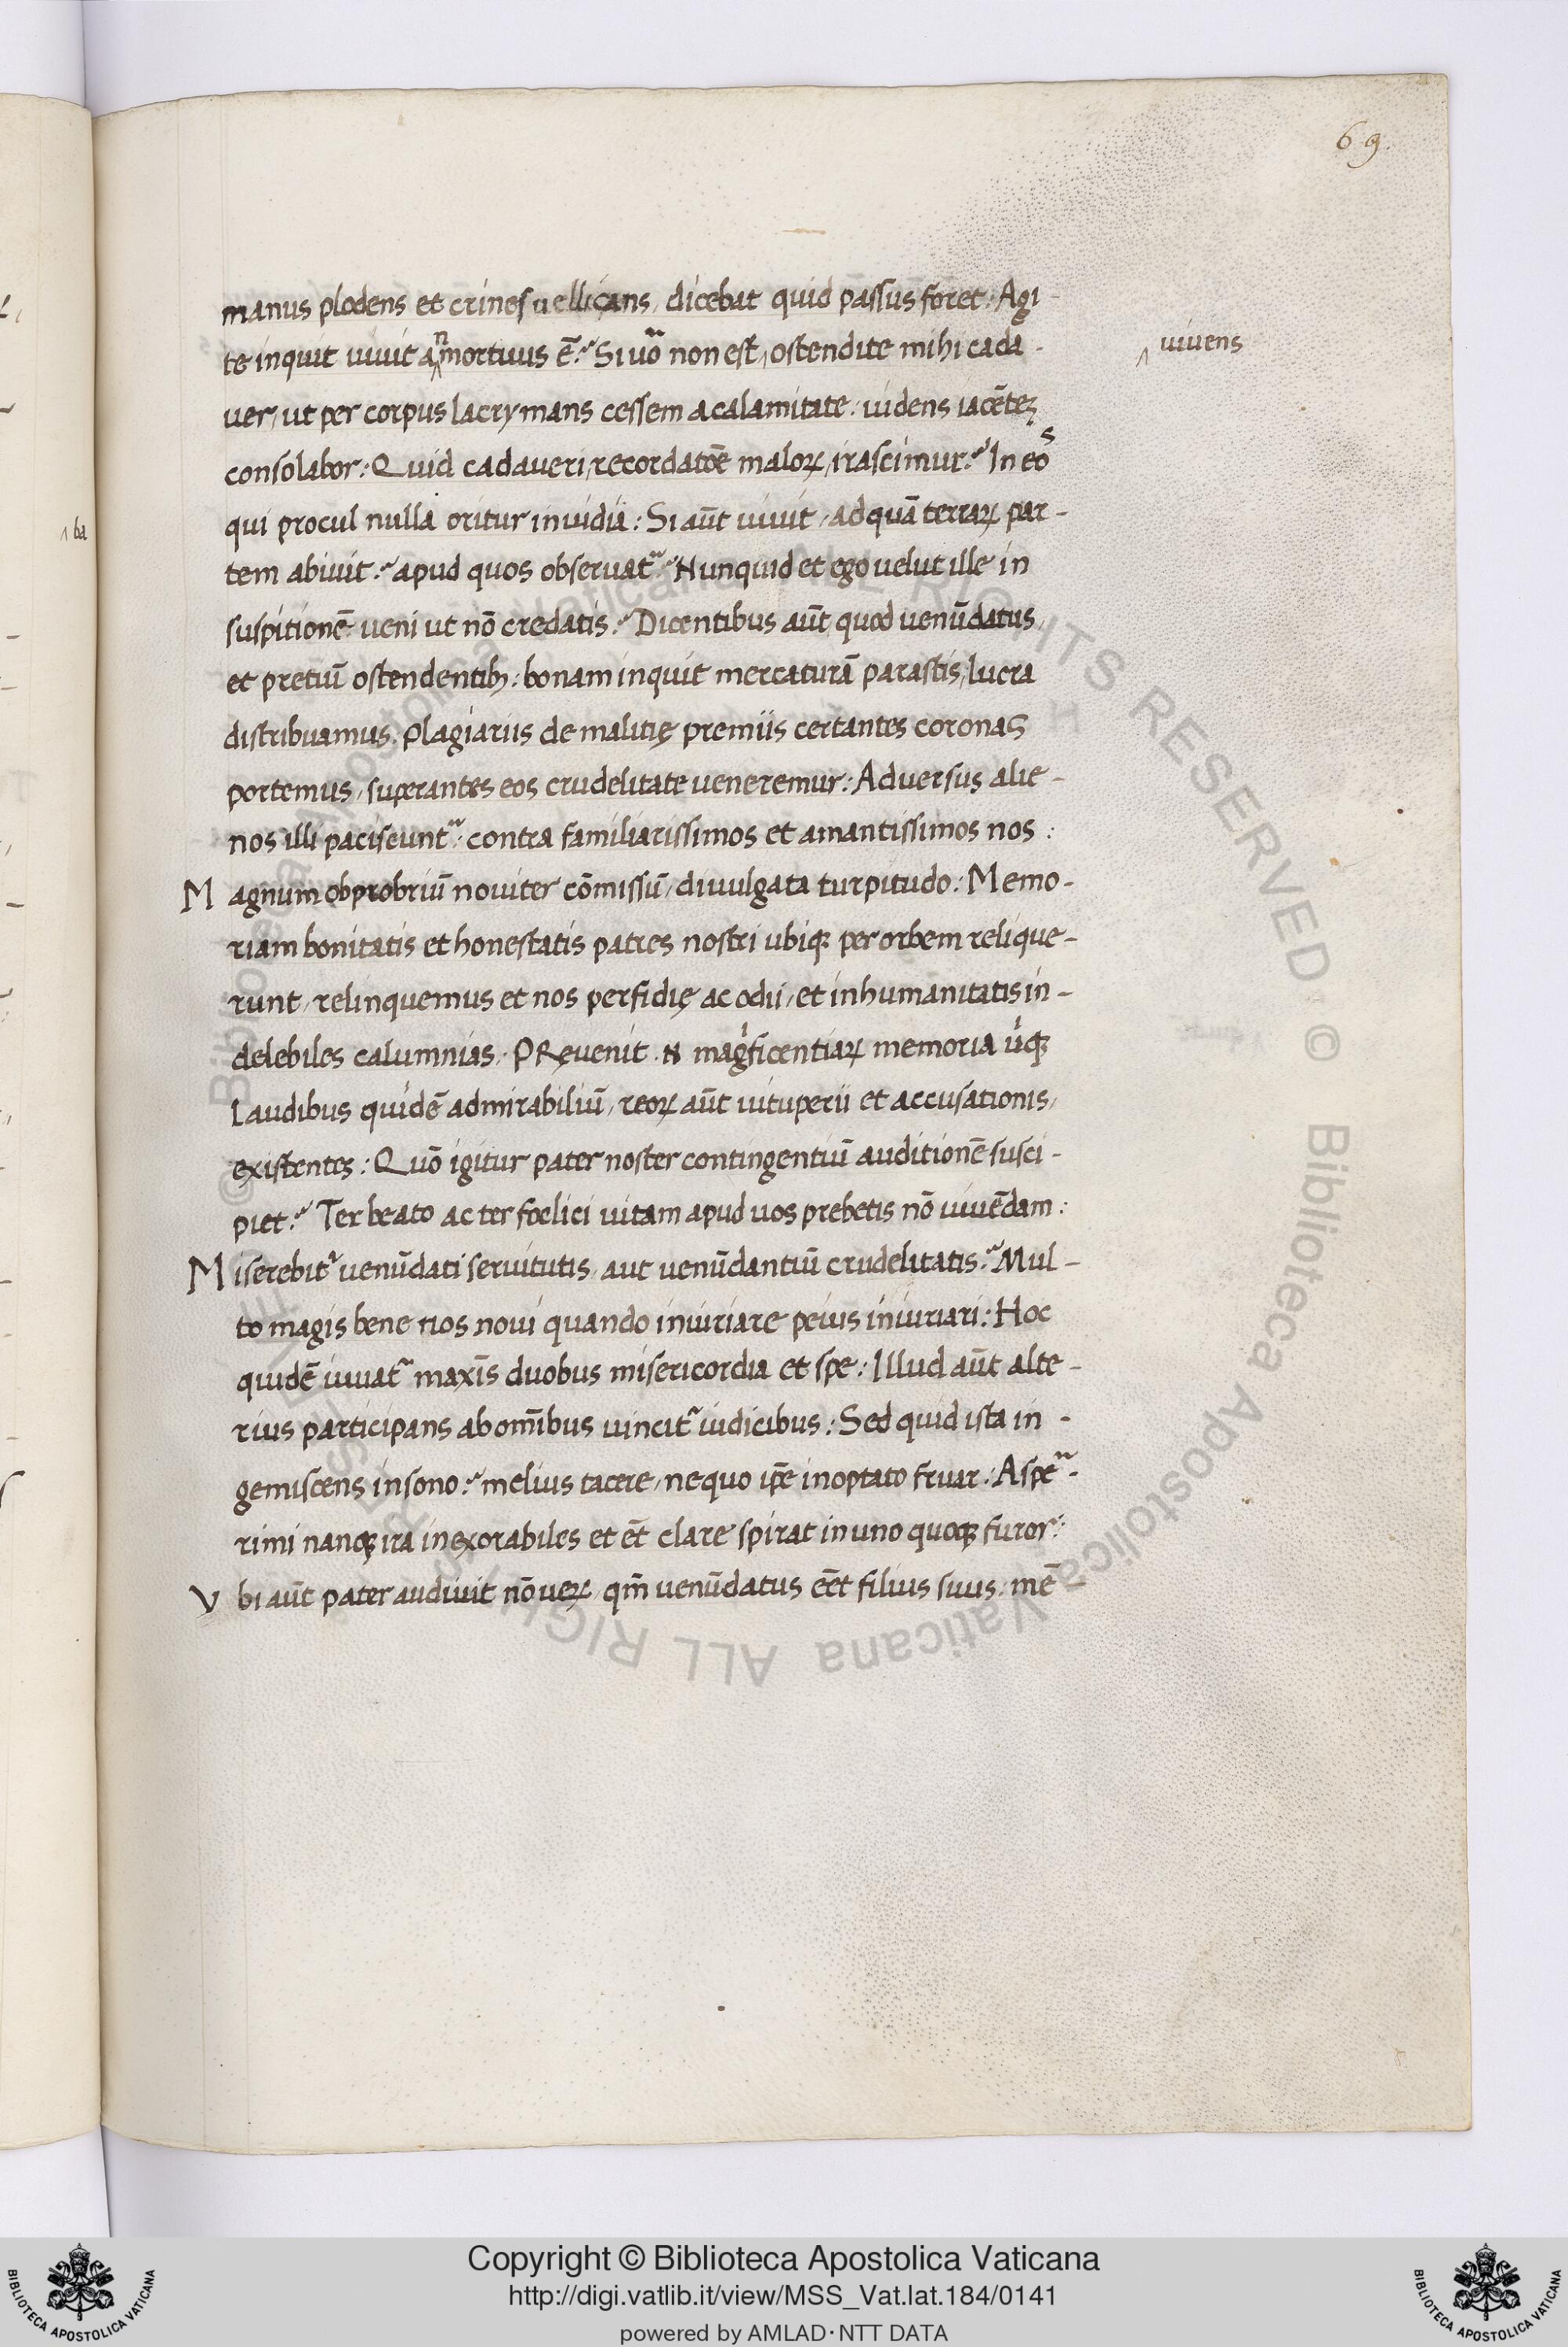 69.
manus plodens et crines uellicans, dicebat quid passus foret: Agi-
te inquit uiuit an mortuus ē? Si uō non est, ostendite mihi cada-
uiuens
uer, ut per corpus lacrymans cessem a calamitate: uidens iacētē
consolabor: Quid cadaueri, recordatōe maloꝝ, irascimur? In eos
qui procul nulla oritur inuidia: Si aūt uiuit, ad quā terraꝝ par-
ba
tem abiuit? apud quos obseruat᷑? Nunquid et ego uelut ille in
suspitionē ueni ut nō credatis? Dicentibus aūt quod uenūdatus,
et pretiū ostendentibꝫ: bonam inquit mercaturā parastis, lucra
distribuamus. Plagiariis de malitię premiis certantes coronas
portemus, superantes eos crudelitate ueneremur: Aduersus alie-
nos illi paciscunt᷑: contra familiarissimos et amantissimos nos:
Magnum obprobriū nouiter cōmissū, diuulgata turpitudo: Memo-
riam bonitatis et honestatis patres nostri ubiqꝫ per orbem relique-
runt, relinquemus et nos perfidię ac odii, et inhumanitatis in-
delebiles calumnias. PRęuenit. N magͥficentiaꝝ memoria uͥqꝫ
laudibus quidē admirabiliū, reoꝝ aūt uituperii et accusationis,
existentes: Quō igitur pater noster contingentiū auditionē susci-
piet? Ter beato ac ter foelici uitam apud uos prebetis nō uiuēdam:
Miserebit᷑ uenūdati seruitutis, aut uenūdantiū crudelitatis? Mul-
to magis bene nos noui quando iniuriare peius iniuriari: Hoc
quidē iuuat᷑ maxīs duobus misericordia et spe: Illud aūt alte-
rius participans ab omībus uincit᷑ iudicibus: Sed quid ista in-
gemiscens insono? melius tacere, ne quo ip̄e inoptato fruar: Aspe᷑-
rimi nanqꝫ ira inexorabiles et ēt clare spirat in uno quoqꝫ furor:
Vbi aūt pater audiuit nō ueꝝ, qm̄ uenūdatus eēt filius suus, mē-
© Biblioteca Apostolica Vaticana ALL RIGHTS RESERVED
Copyright © Biblioteca Apostolica Vaticana
http://digi.vatlib.it/view/MSS_Vat.lat.184/0141
powered by AMLAD·NTT DATA
BIBLIOTECA APOSTOLICA VATICANA
BIBLIOTECA APOSTOLICA VATICANA